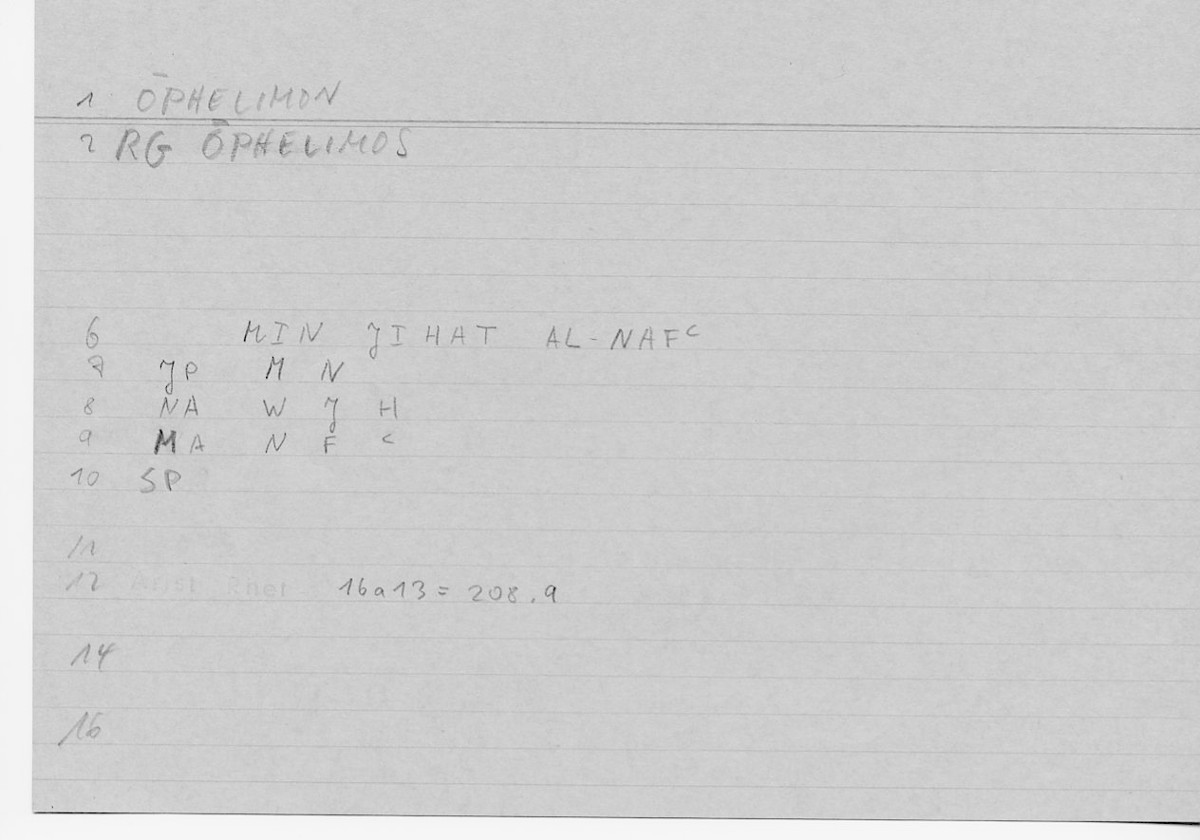 1 ŌPHELIMON
2 RG ŌPHELIMOS
6 MIN JIHAT AL-NAFᶜ
7 JP M N
8 NA W J H
9 MA N F ᶜ
10 SP
11
12 Arist Rhet 16a13 = 208.9
14
16